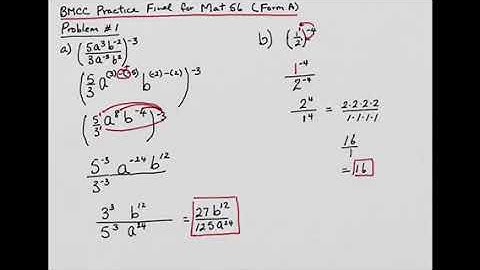 BMCC Practice Final for Mat 56 (Form A)
Problem #1
a) (5a³b⁻² / 3a⁻⁵b²)⁻³
(5/3 a⁽³⁾⁻⁽⁻⁵⁾ b⁽⁻²⁾⁻⁽²⁾)⁻³
(5¹/3¹ a⁸ b⁻⁴)⁻³
5⁻³ a⁻²⁴ b¹² / 3⁻³
3³ b¹² / 5³ a²⁴ = 27b¹² / 125a²⁴
b) (1/2)⁻⁴
1⁻⁴ / 2⁻⁴
2⁴ / 1⁴ = 2·2·2·2 / 1·1·1·1
16 / 1
= 16